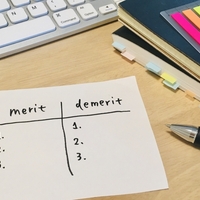 merit demerit
1. 1.
2. 2.
3. 3.